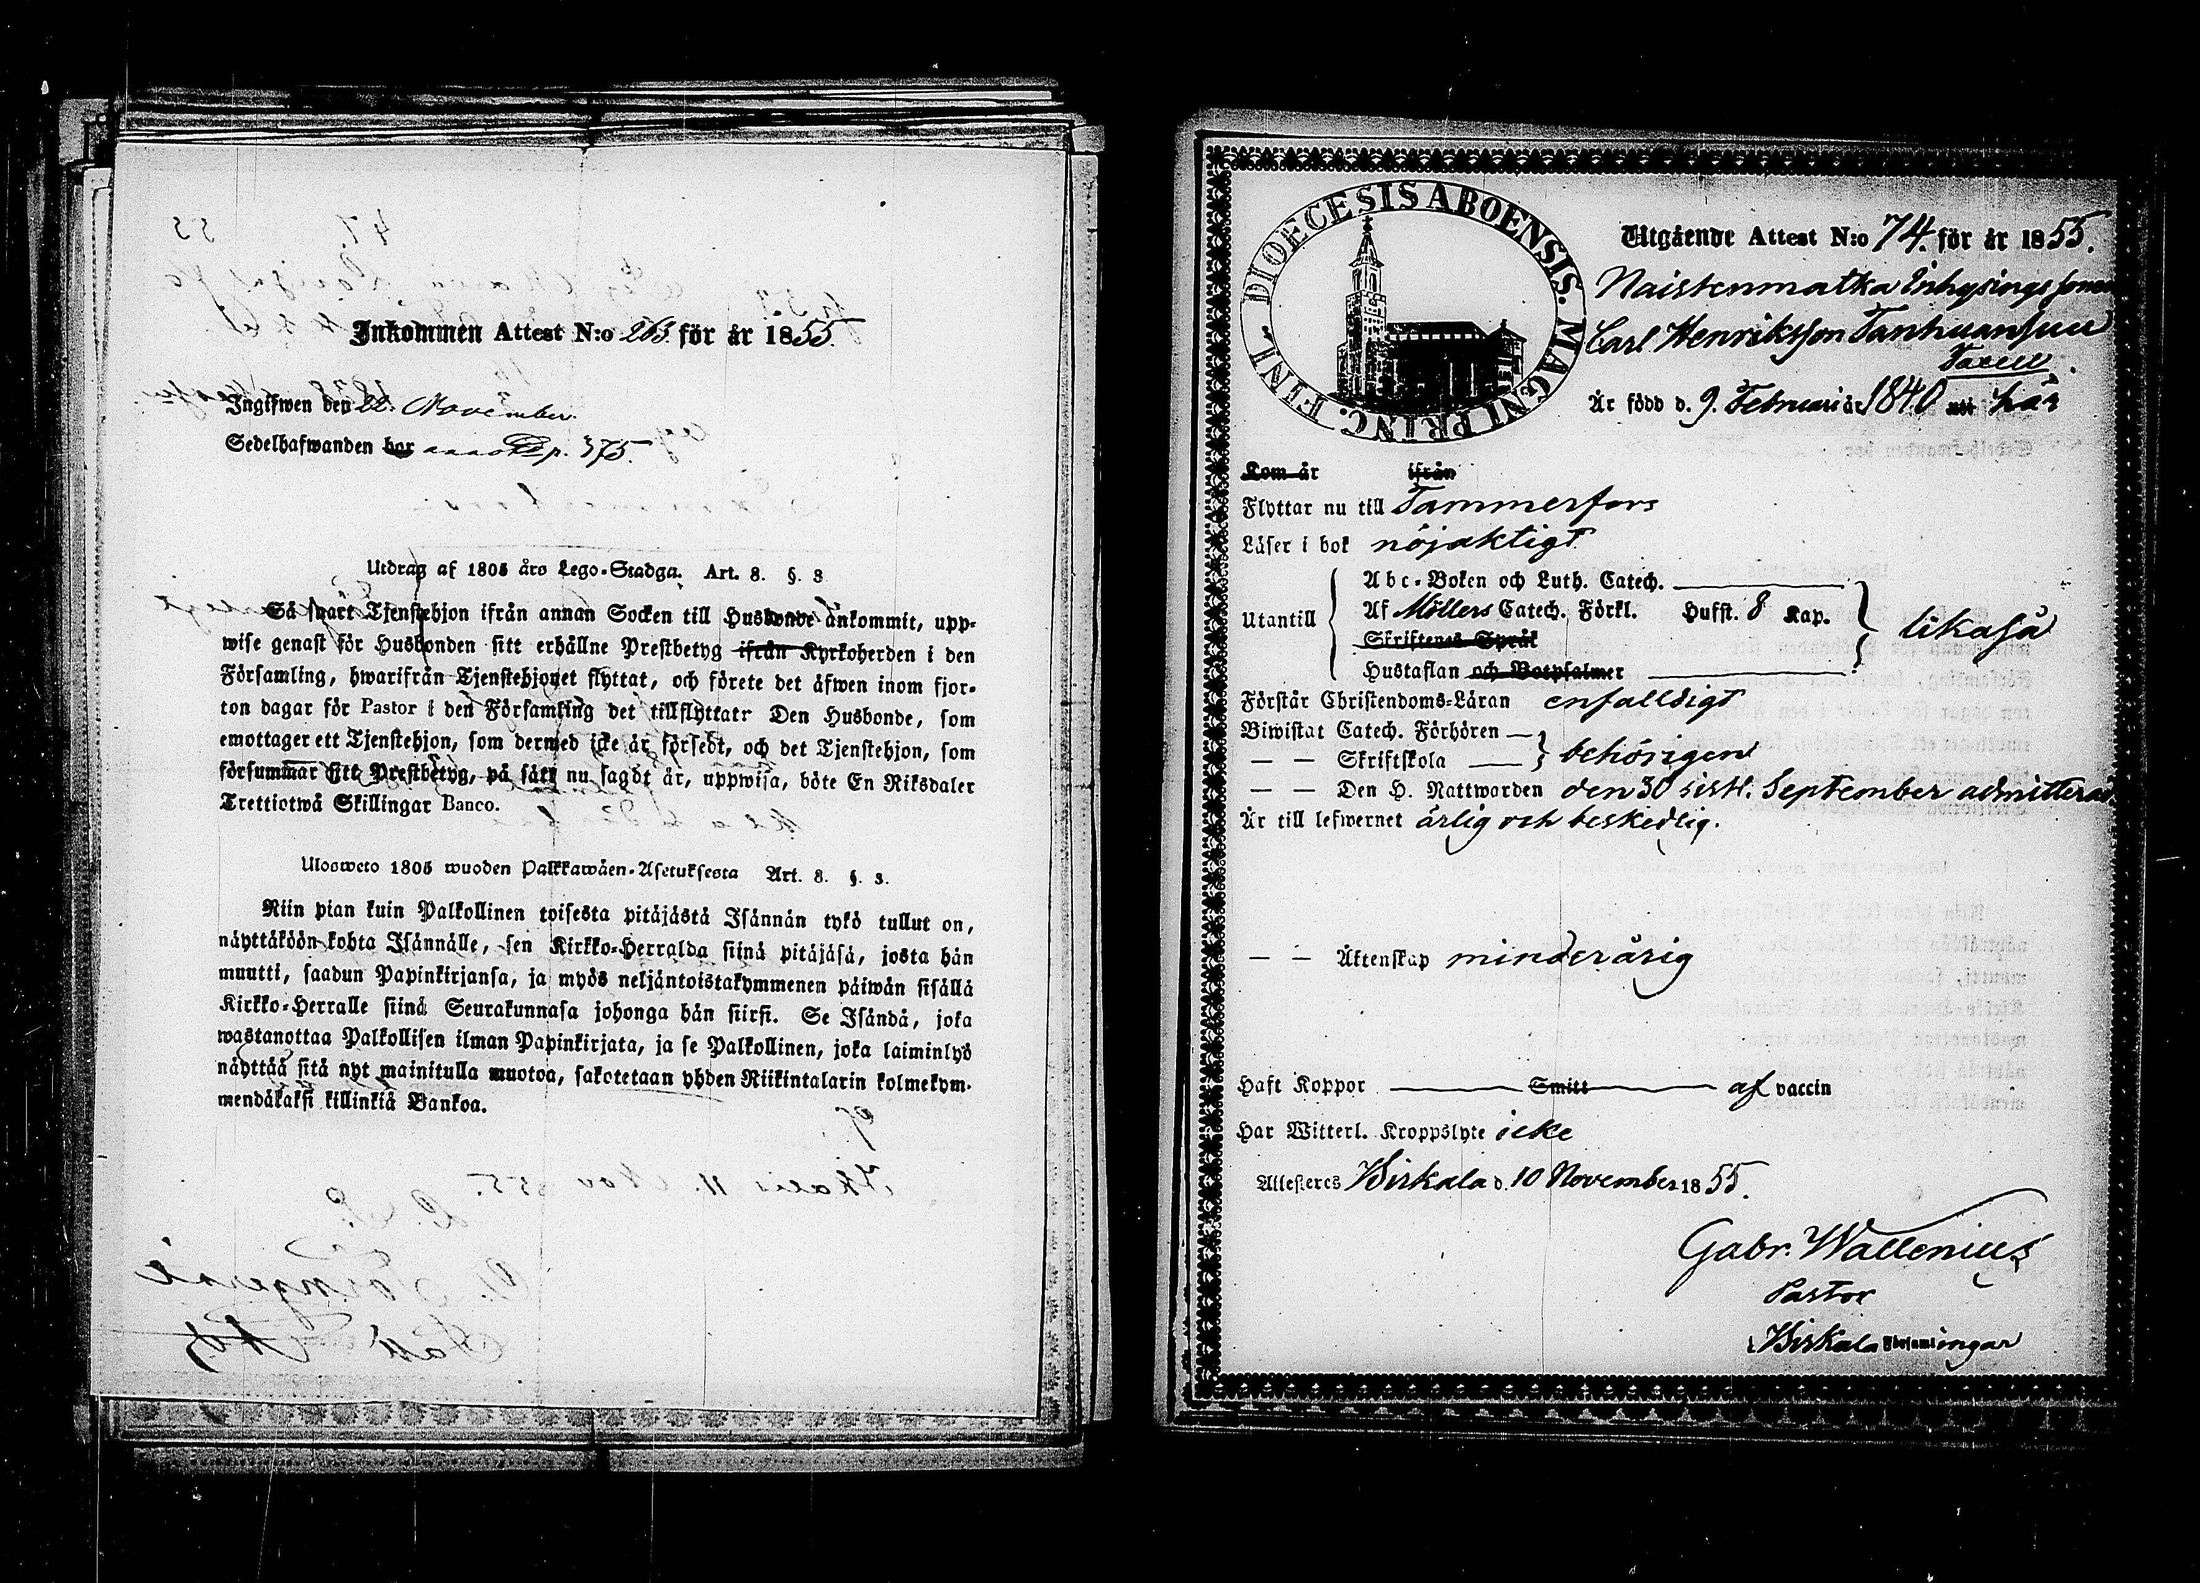 Inkommen Attest N:o 263 för år 1855.
Ingifwen den 22. November.
Sedelhafwanden bor p. 375.
Utdrag af 1805 års Lego-Stadga. Art. 8. §. 3
Så snart Tjenstehjon ifrån annan Socken till Husbonde ankommit, upp-
wise genast för Husbonden sitt erhållne Prestbetyg ifrån Kyrkoherden i den
Församling, hwarifrån Tjenstehjonet flyttat, och förete det äfwen inom fjor-
ton dagar för Pastor i den Församling det tillflyttatr Den Husbonde, som
emottager ett Tjenstehjon, som dermed icke är försedt, och det Tjenstehjon, som
försummar sitt Prestbetyg, på sätt nu sagdt är, uppwisa, böte En Riksdaler
Trettiotwå Skillingar Banco.
Ulosweto 1805 wuoden Palkkawäen-Asetuksesta Art. 8. §. 3.
Niin pian kuin Palkollinen toisesta pitäjästä Isännän tykö tullut on,
näyttäköön kohta Isännälle, sen Kirkko-Herralda siinä pitäjäsä, josta hän
muutti, saadun Papinkirjansa, ja myös neljäntoistakymmenen päiwän sisällä
Kirkko-Herralle siinä Seurakunnasa johonga hän siirsi. Se Isändä, joka
wastanottaa Palkollisen ilman Papinkirjata, ja se Palkollinen, joka laiminlyö
näyttää sitä nyt mainitulla muotoa, sakotetaan yhden Riikintalarin kolmekym-
mendäkaksi killinkiä Bankoa.
DIOECESIS ABOENSIS. MAGNI PRINC. FINL
Utgående Attest N:o 74. för år 1855.
Naistenmatka Inhysings sonen
Carl Henriksson Tanhuansuu
Är född d. 9. Februari år 1840 uti här
Kom år ifrån
Flyttar nu till Tammerfors
Läser i bok nöjaktigt
Utantill
Abc-Boken och Luth. Catech.
Af Möllers Catech. Förkl. Hufst. 8 Kap.
likaså
Skriftenes Språk
Hustaflan och Botpsalmer
Förstår Christendoms-Läran enfalldigt
Biwistat Catech. Förhören
— — Skriftskola behörigen
— — Den H. Nattwarden den 30 sistl. September admitterad
Är till lefwernet ärlig och beskedlig.
— — Äktenskap minderårig
Haft Koppor Smitt af vaccin
Har Witterl. Kroppslyte icke
Attesteres Birkala d. 10 November 1855.
Gabr. Wallenius
Pastor
i Birkala Församlingar